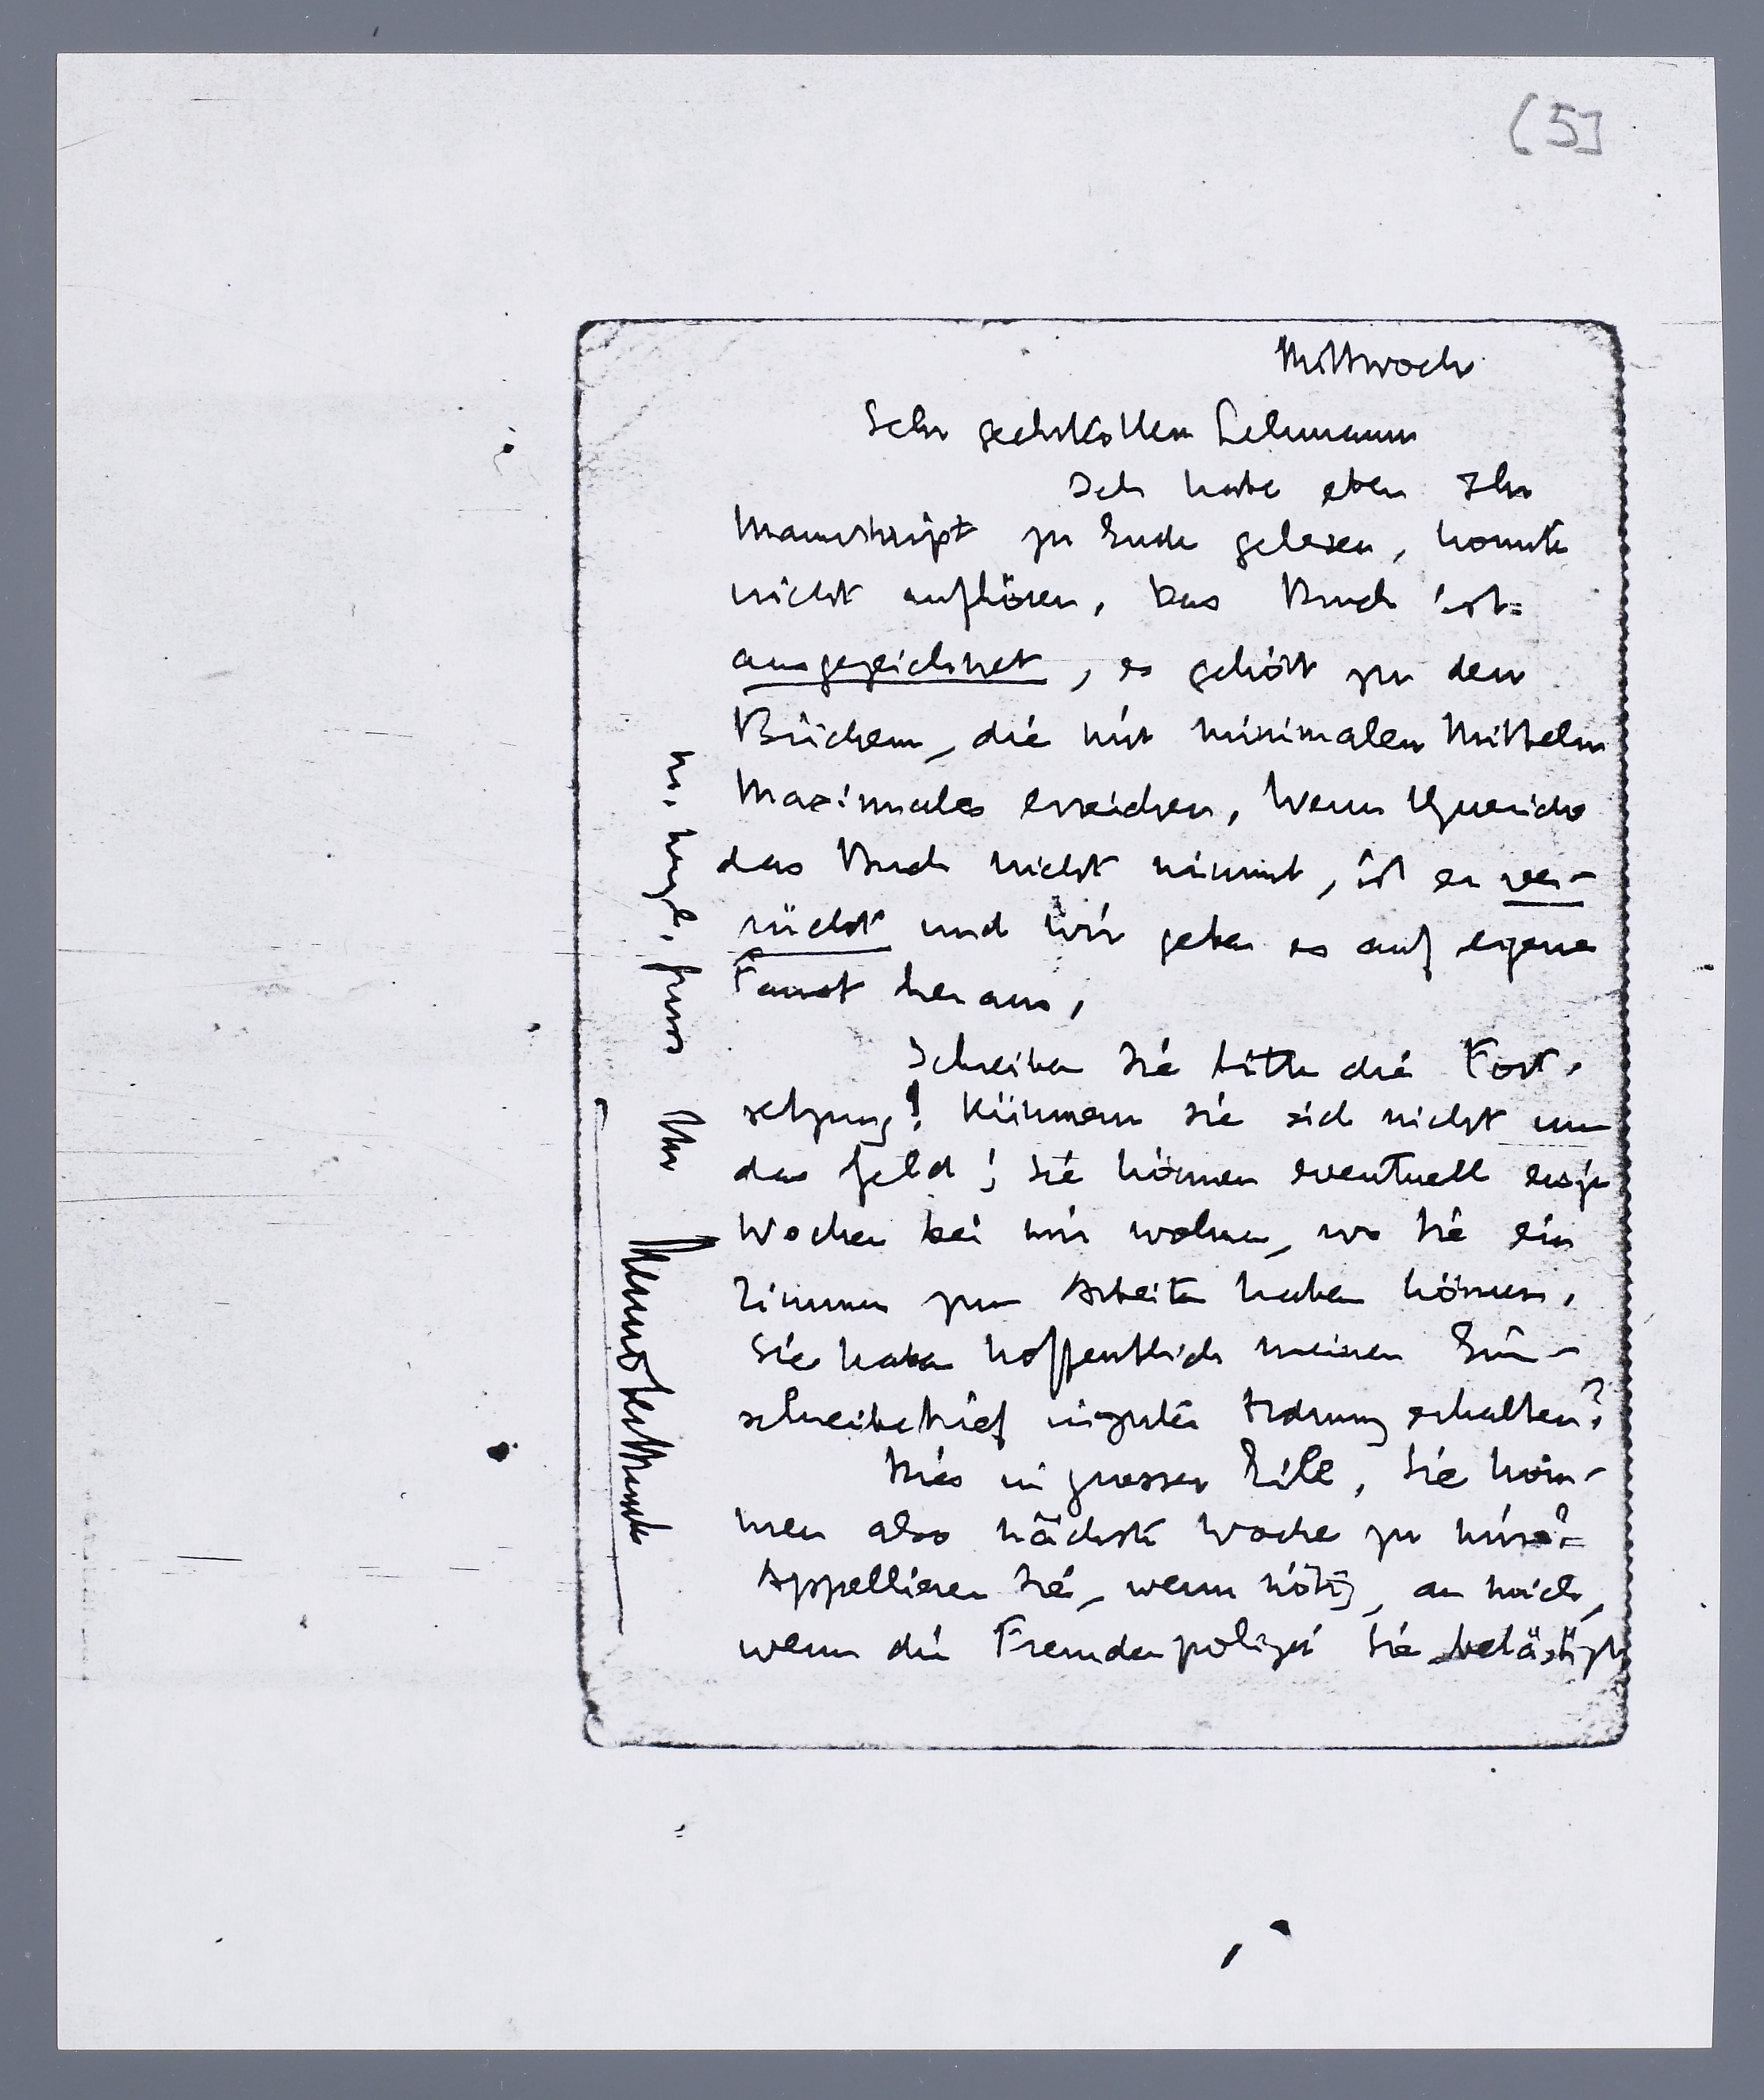 [5]
Mittwoch
Sehr geehrter Herr Lehmann
Ich habe eben Ihr
Manuskript zu Ende gelesen, konnte
nicht aufhören. Das Buch ist
ausgezeichnet, es gehört zu den
Büchern, die mit minimalen Mitteln
Maximales erreichen. Wenn Querido
das Buch nicht nimmt, ist er ver-
rückt und wir geben es auf eigene
Faust heraus.
Schreiben Sie bitte die Fort-
setzung! Kümmern Sie sich nicht um
das Geld! Sie können eventuell einige
Wochen bei mir wohnen, wo Sie ein
Zimmer zum Arbeiten haben können.
Sie haben hoffentlich meinen Ein-
schreibebrief in guter Ordnung erhalten?
Dies in grosser Eile. Sie kom-
men also nächste Woche zu mir?
Appellieren Sie, wenn nötig, an mich,
wenn die Fremdenpolizei Sie belästigt
M. herzl. Gruss Ihr
Menno ter Braak